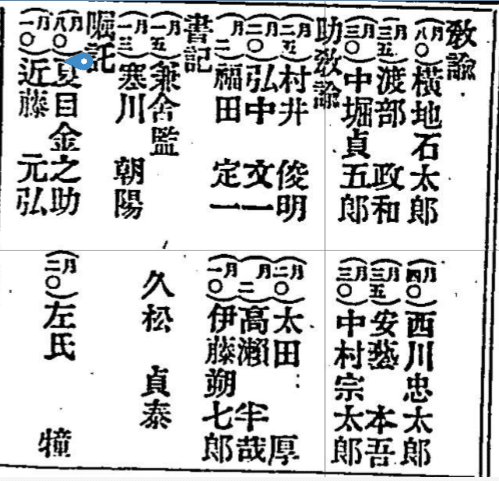 敎諭
（月八〇）橫地石太郎
（月四〇）西川忠太郎
（月三五）渡部 政和
（月三五）安藝 本吾
（月三〇）中堀貞五郎
（月三〇）中村宗太郎
助敎諭
（月二五）村井 俊明
（月二〇）太田 厚
（月二〇）弘中 文一
（月二）高瀨 半哉
（月二）福田 定一
（月一〇）伊藤朔七郎
書記
（月一五）兼舍監
（月一三）寒川 朝陽
久松 貞泰
嘱託
（月八〇）夏目金之助
（月二〇）左氏 犝
（月一〇）近藤 元弘